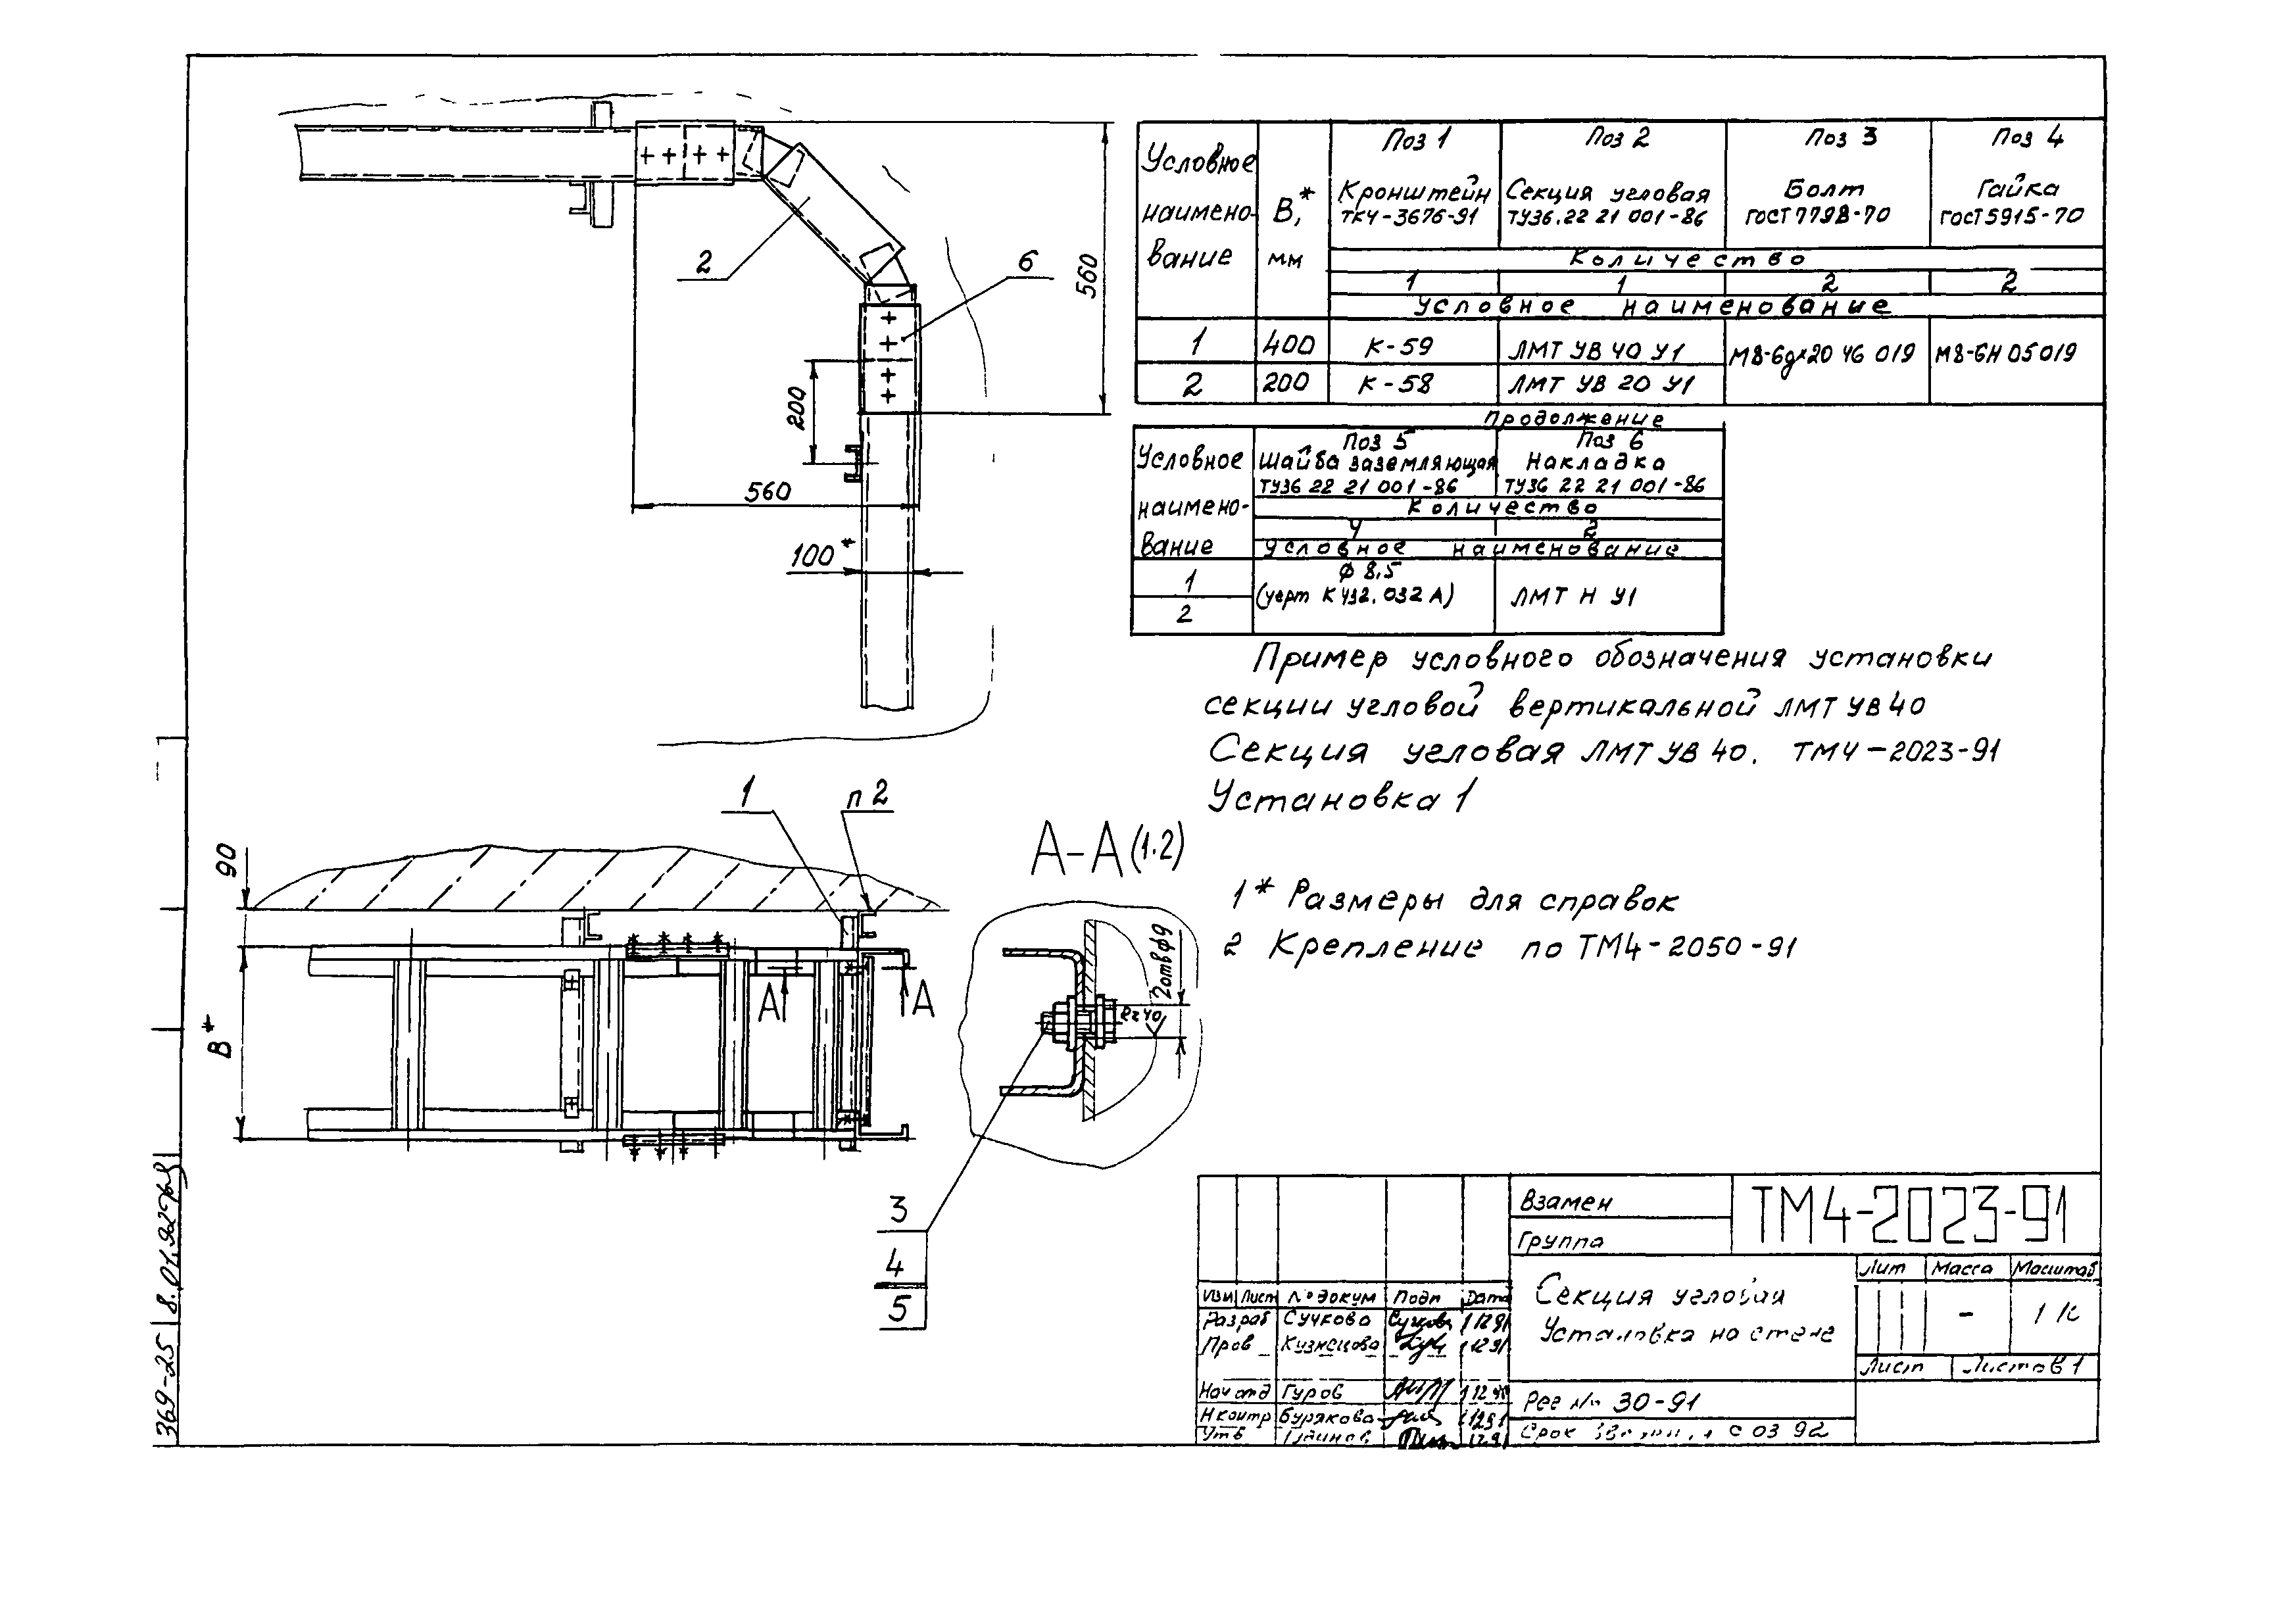 2
6
560
200
560
100*
Условное наимено-вание
В,* мм
Поз 1
Кронштейн
ТКЧ-3676-91
Поз 2
Секция угловая
ТУ36.22 21 001-86
Поз 3
Болт
ГОСТ 7798-70
Поз 4
Гайка
ГОСТ 5915-70
Количество
1 1 2 2
Условное наименование
1 400 К-59 ЛМТ УВ 40 У1 М8-6gx20 46 019 М8-6Н 05 019
2 200 К-58 ЛМТ УВ 20 У1
Продолжение
Условное наимено-вание
Поз 5
Шайба заземляющая
ТУ36 22 21 001-86
Поз 6
Накладка
ТУ36 22 21 001-86
Количество
4 2
Условное наименование
1
2
Ф 8,5
(черт К432.032 А)
ЛМТ Н У1
Пример условного обозначения установки
секции угловой вертикальной ЛМТ УВ 40
Секция угловая ЛМТ УВ 40. ТМ4-2023-91
Установка 1
1* Размеры для справок
2 Крепление по ТМ4-2050-91
1
п 2
90
В*
А
А
А-А (1:2)
2 отв ф9
Rz 40
3
4
5
369-25
Взамен
ТМ4-2023-91
Группа
Секция угловая
Установка на стене
Лит Масса Масштаб
-
Лист Листов 1
Изм Лист № докум Подп Дата
Разраб Сучкова
Пров Кузнецова
Нач отд Гуров
Н контр Бурякова
Утв
Рег № 30-91
Срок с 03 92